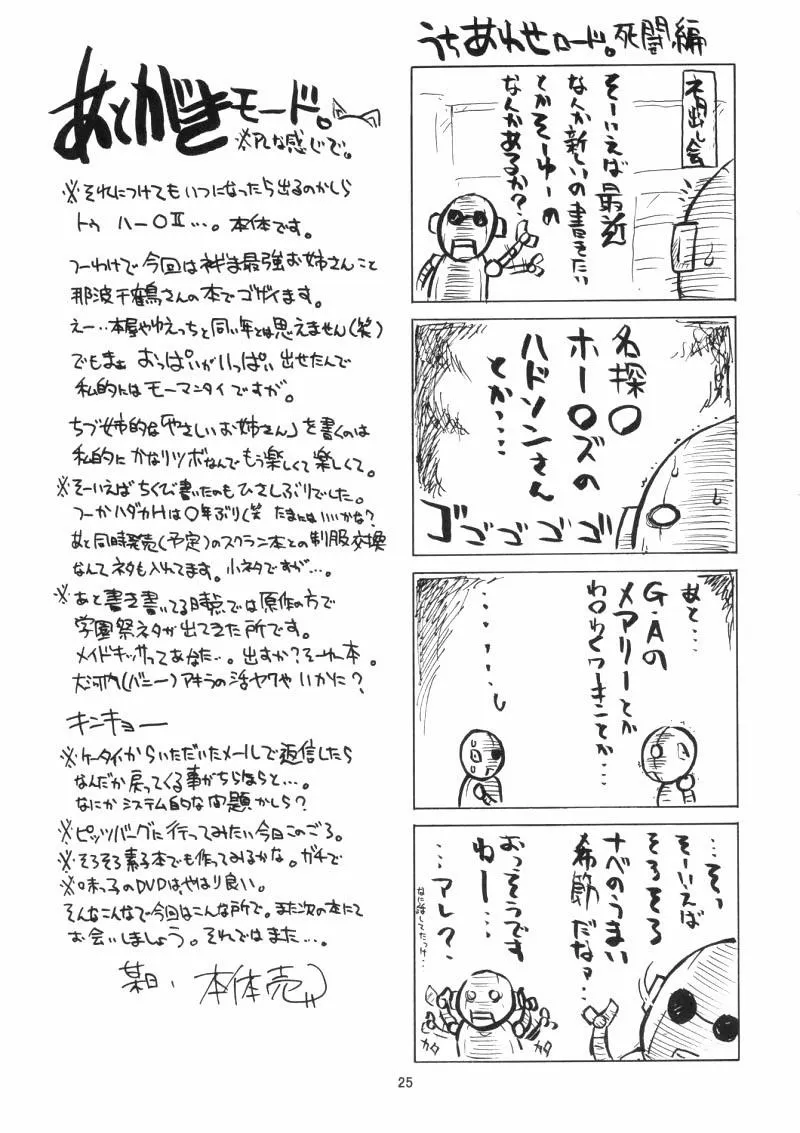 うちあわせロード。死闘編
ネタ出し会
そーいえば最近
なんか新しいの書きたい
とかそーゆーの
なんかあるか?
名探〇
ホー〇ズの
ハドソンさん
とか・・・・
ゴゴゴゴゴ
あと・・・
G・Aの
メアリーとか
わ〇わくワーキンとか・・・
・・・・・・・
・・・そっ
そーいえば
そろそろ
ナベのうまい
季節だなァ・・・
おっそうです
ねー・・・
・・・アレ?
なに話してたっけ・・・
カタ
カタ
あとがきモード。
※PLな感じで。
※それにつけてもいつになったら出るのかしら
トゥ ハー〇Ⅱ・・・。本体です。
つーわけで今回はネギま最強お姉さんこと
那波千鶴さんの本でゴザイます。
えー・・本屋やゆえっちと同い年とは思えません(笑)
でもまぁ おっぱいがいっぱい出せたんで
私的にはモーマンタイですが。
ちづ姉的な「やさしいお姉さん」を書くのは
私的にかなりツボなんでもう楽しくて楽しくて。
※そーいえばちくび書いたのもひさしぶりでした。
つーかハダカHは〇年ぶり(笑 たまにはいいかな?
あと同時発売(予定)のスクラン本との制服交換
なんてネタも入れてます。小ネタですが・・・。
※あと書き書いてる時点では原作の方で
学園祭ネタが出てきた所です。
メイドキッサってあなた・・。出すか?そーゆー本。
大河内(バニー)アキラの活ヤクやいかに?
キンキョー
※ケータイからいただいたメールで返信したら
なんだか戻ってくる事がちらほらと・・・。
なにかシステム的な問題かしら?
※ピッツバーグに行ってみたい今日このごろ。
※そろそろ素子本でも作ってみるかな。ガチで
※味っ子のDVDはやはり良い。
そんなこんなで今回はこんな所で。また次の本にて
お会いしましょう。それではまた・・・。
某日、本体売
25